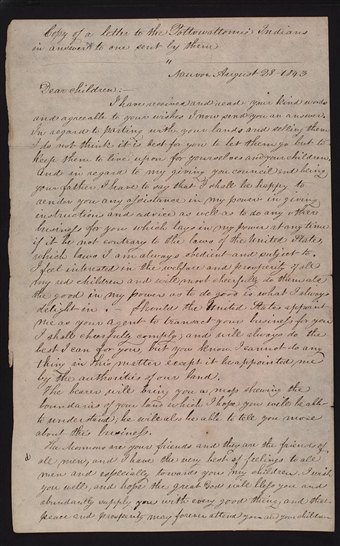 Copy of a letter to the Pottowattomie Indians
in answer to one sent by them
"
Nauvoo August 28 - 1843
Dear Children:-
I have received and read your kind words
and agreeable to your wishes I now send you an answer.
In regard to parting with your lands and selling them
I do not think it is best for you to let them go but to
keep them to live upon for yourselves and your children.
And in regard to my giving you council and being
your father, I have to say that I shall be happy to
render you any assistance in my power in giving
instructions and advice as well as to do any other
business for you which lays in my power at any time
if it be not contrary to the laws of the United States,
which laws I am always obedient and subject to.
I feel interested in the welfare and prosperity of all
my red children and will most cheerfully do them all
the good in my power as to do good is what I always
delight in. - Should the United States appoint
me as your agent to transact your business for you
I shall cheerfully comply and will always do the
best I can for you, but you know I cannot do any
thing in this matter except it be appointed me
by the authorities of our land.
The bearer will bring you a map shewing the
boundaries of your land which I hope you will be able
to understand, he will also be able to tell you more
about the business.
The Mormons are your friends and they are the friends of
all men, and I have the very best of feelings to all
men and especially towards you my children I wish
you well, and hope the great God will bless you and
abundantly supply you with every good thing, and that
peace and prosperity may forever attend you and your children